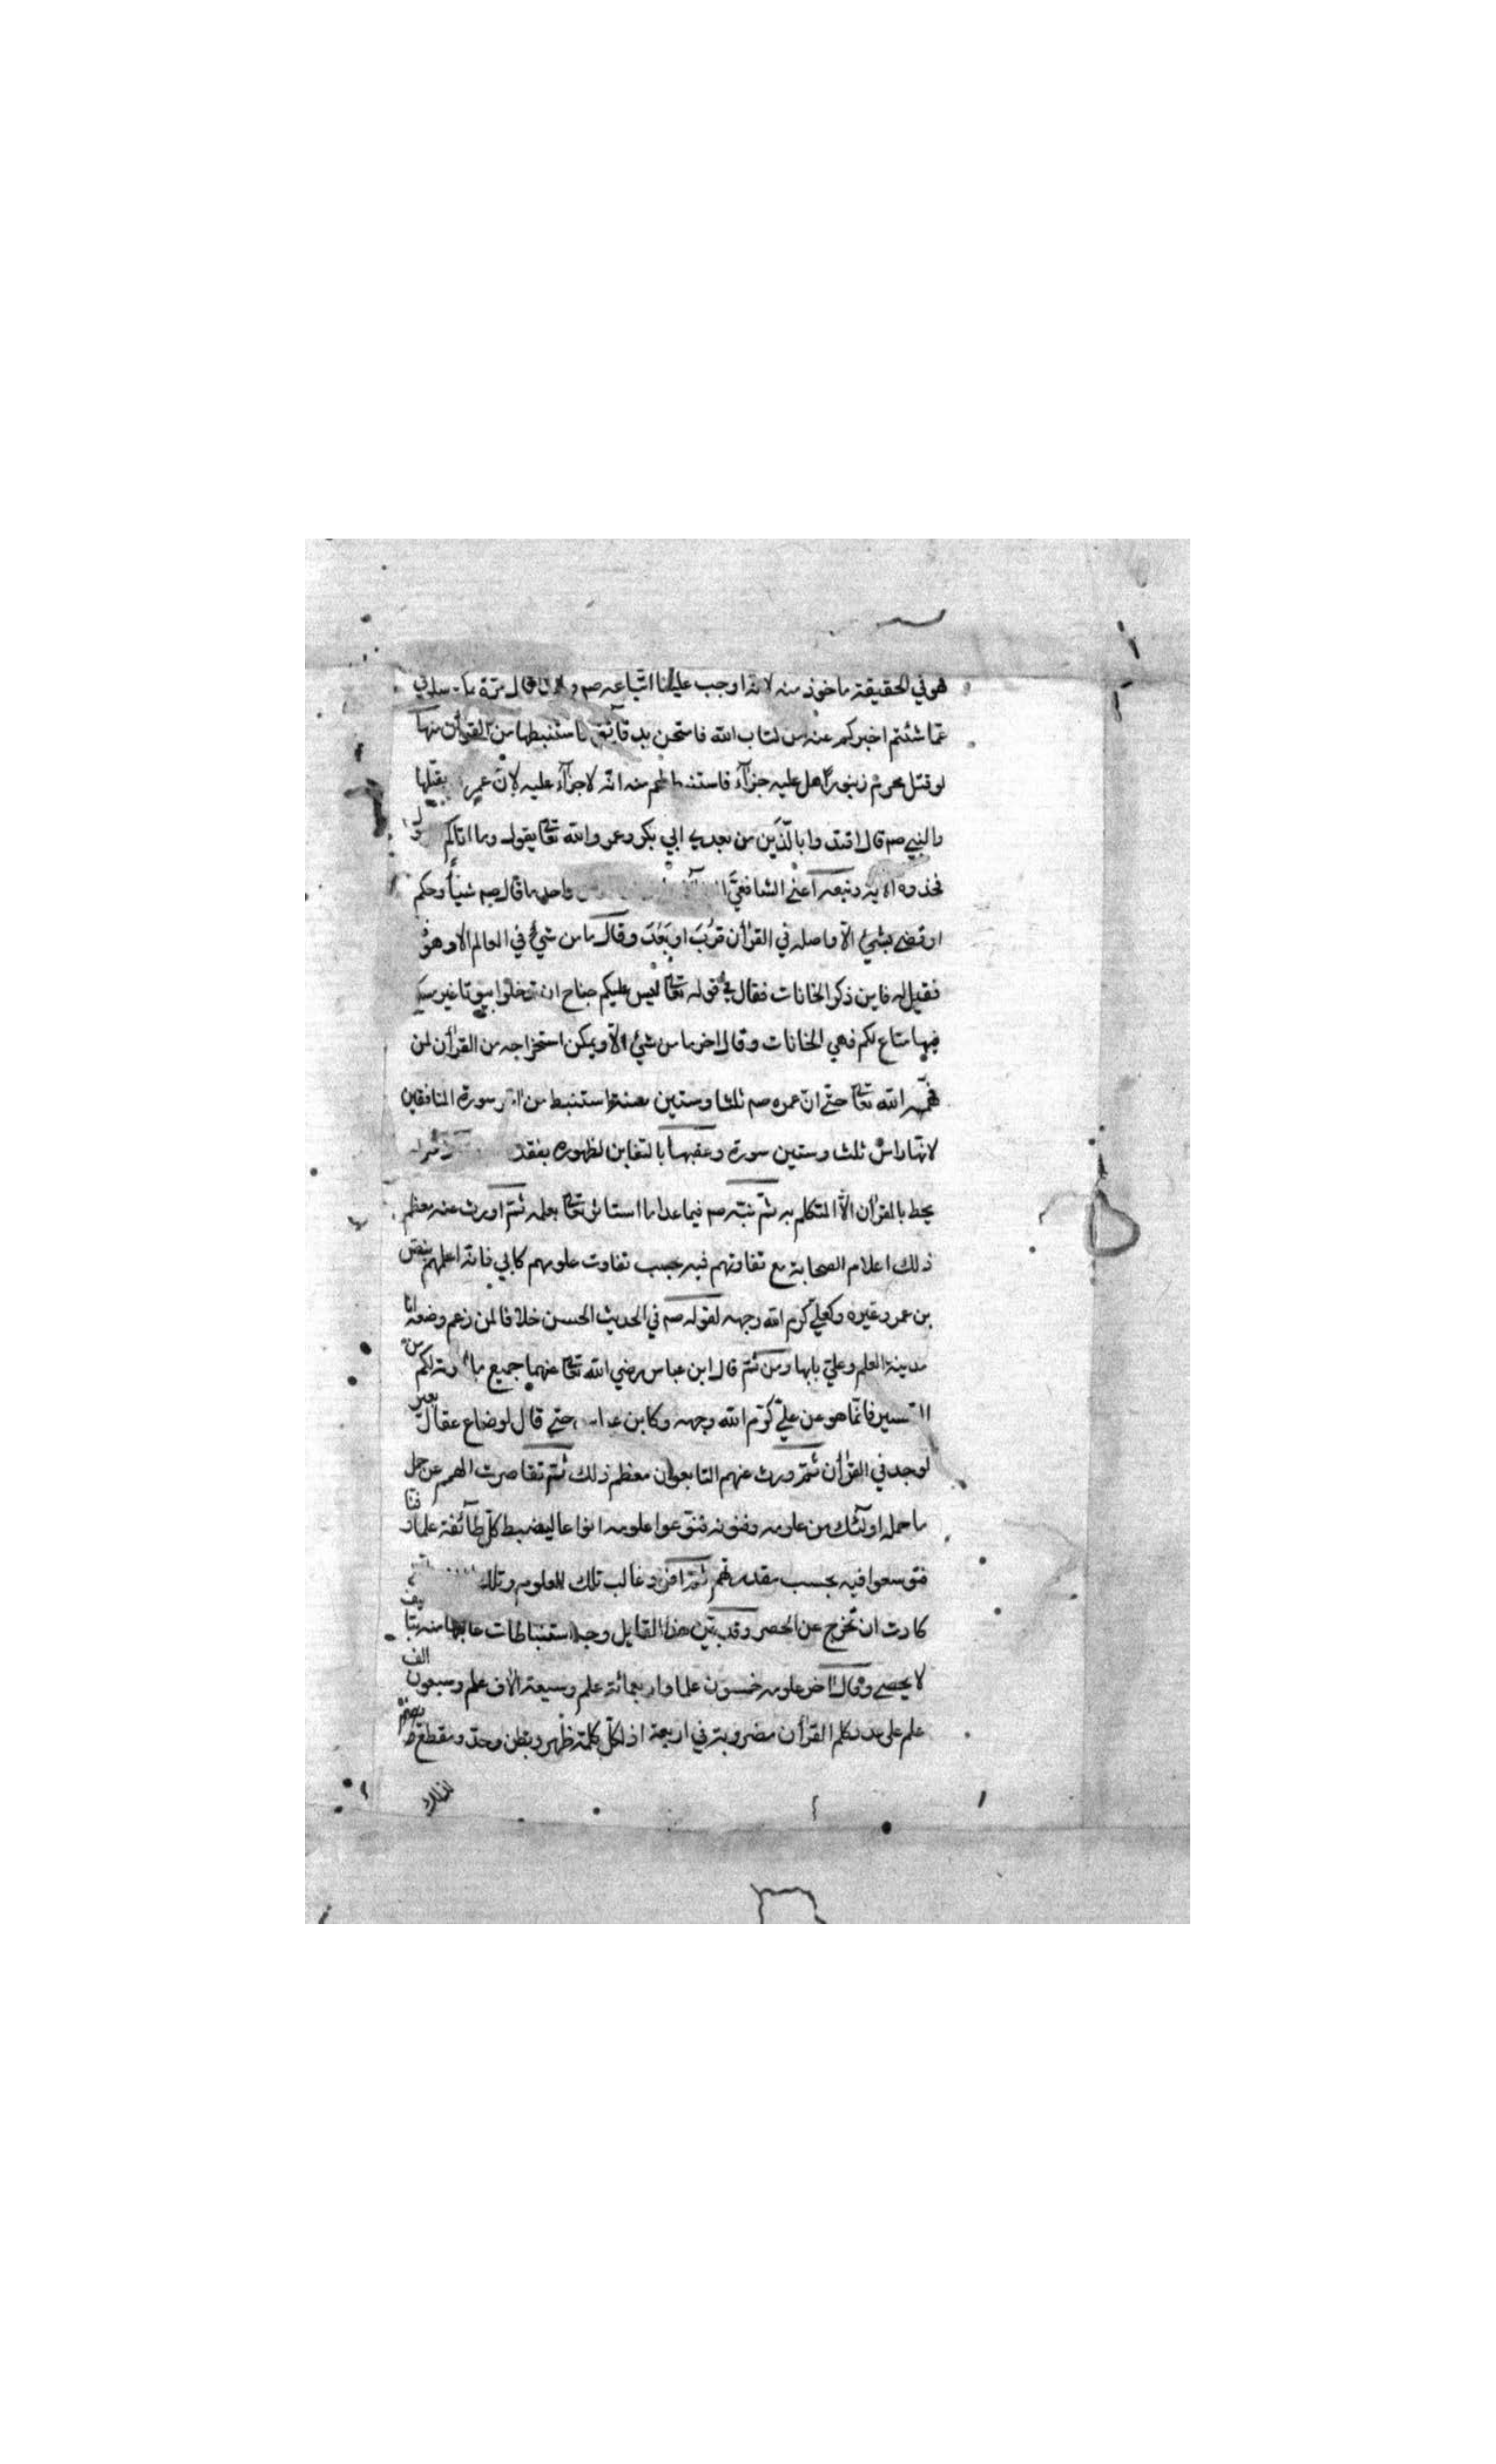 هو في الحقيقة ماخوذ منه لانه اوجب علينا اتباعه صم و قال مرة بمكة سلوني
عمّا شئتم اخبركم عنه من كتاب الله فامتحن بدقآئق فاستنبطها من القرأن منها
لو قتل محرم زنبورًا هل عليه جزآء فاستنبط لهم منه انّه لا جزآء عليه لانّ عمر بقتلها
والنبي صم قال اقتدوا بالّذَين من بعدي ابي بكر وعمر والله تعا يقول وما اتاكم
فخذوه الاية وتبعه اعني الشافعيّ واحد ما قال صم شيئًا وحكم
او قضى بشئ الّا واصله في القرأن قرُبَ او بَعُدَ وقال ما من شئ في العالم الا وهو
فقيل له فاين ذكر الخانات فقال في قوله تعا ليس عليكم جناح ان تدخلوا بيوتا غير
فيها متاع لكم فهي الخانات وقال اخر ما من شئ الّا ويمكن استخراجه من القرأن لمن
فهّمه الله تعا حتّى انّ عمره صم ثلثا وستين سنة استنبط من اخر سورة المنافقين
لانّها راس ثلث وستين سورة وعقبها بالتغابن لظهوره بفقده
يحط بالقرأن الّا المتكلم به ثمّ نبيّه صم فيما عدا ما استاثر تعا بعلمه ثمّ اورث عنه معظم
ذلك اعلام الصحابة مع تفاوتهم فيه بحسب تفاوت علومهم كابي فانه اعلمهم بنص
بن عمر وغيره وكعليّ كرم الله وجهه لقوله صم في الحديث الحسن خلافا لمن زعم وضعه انا
مدينة العلم وعليّ بابها ومن ثمّ قال ابن عباس رضي الله تعا عنهما جميع ما ابرزته لكم من
التفسير فانّما هو عن عليّ كرّم الله وجهه وكابن عباس حتى قال لو ضاع عقال بعير
لوجد في القرأن ثمّ ورث عنهم التابعون معظم ذلك ثمّ تقاصرت الهمم عن حمل
ما حمله اولٓئك من علومه وفنونه فنوّعوا علومه انواعا ليضبط كلّ طآئفة علما وفنا
فتوسعوا فيه بحسب مقدرتهم ثمّ افرد غالب تلك العلوم وتلك
كادت ان تخرج عن الحصر وقد بيّن هذا القايل وجه استنباطات غالبها منه بتأليف
لا يحصى وقال اخر علومه خمسون علما واربعمائة علم وسبعة الاف علم وسبعون الف
علم على عدد كلم القرأن مضروبة في اربعة اذ لكلّ كلمة ظهر وبطن وحدّ ومقطع